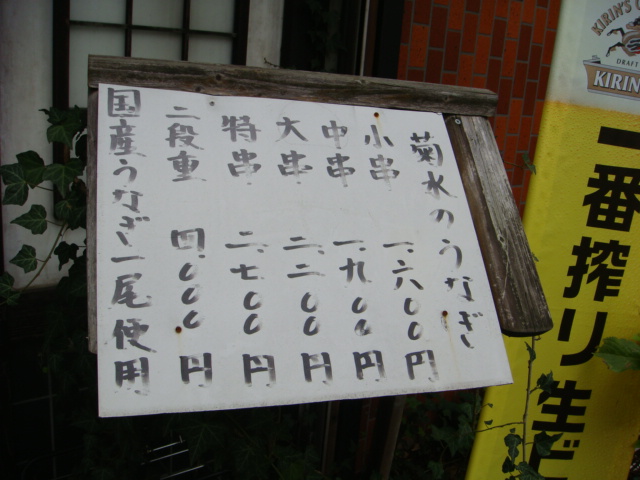 菊水のうなぎ
小串 一、六〇〇円
中串 一、九〇〇円
大串 二、二〇〇円
特串 二、七〇〇円
二段重 四、〇〇〇円
国産うなぎ一尾使用
KIRIN'S
DRAFT
KIRIN
一番搾り生ビ